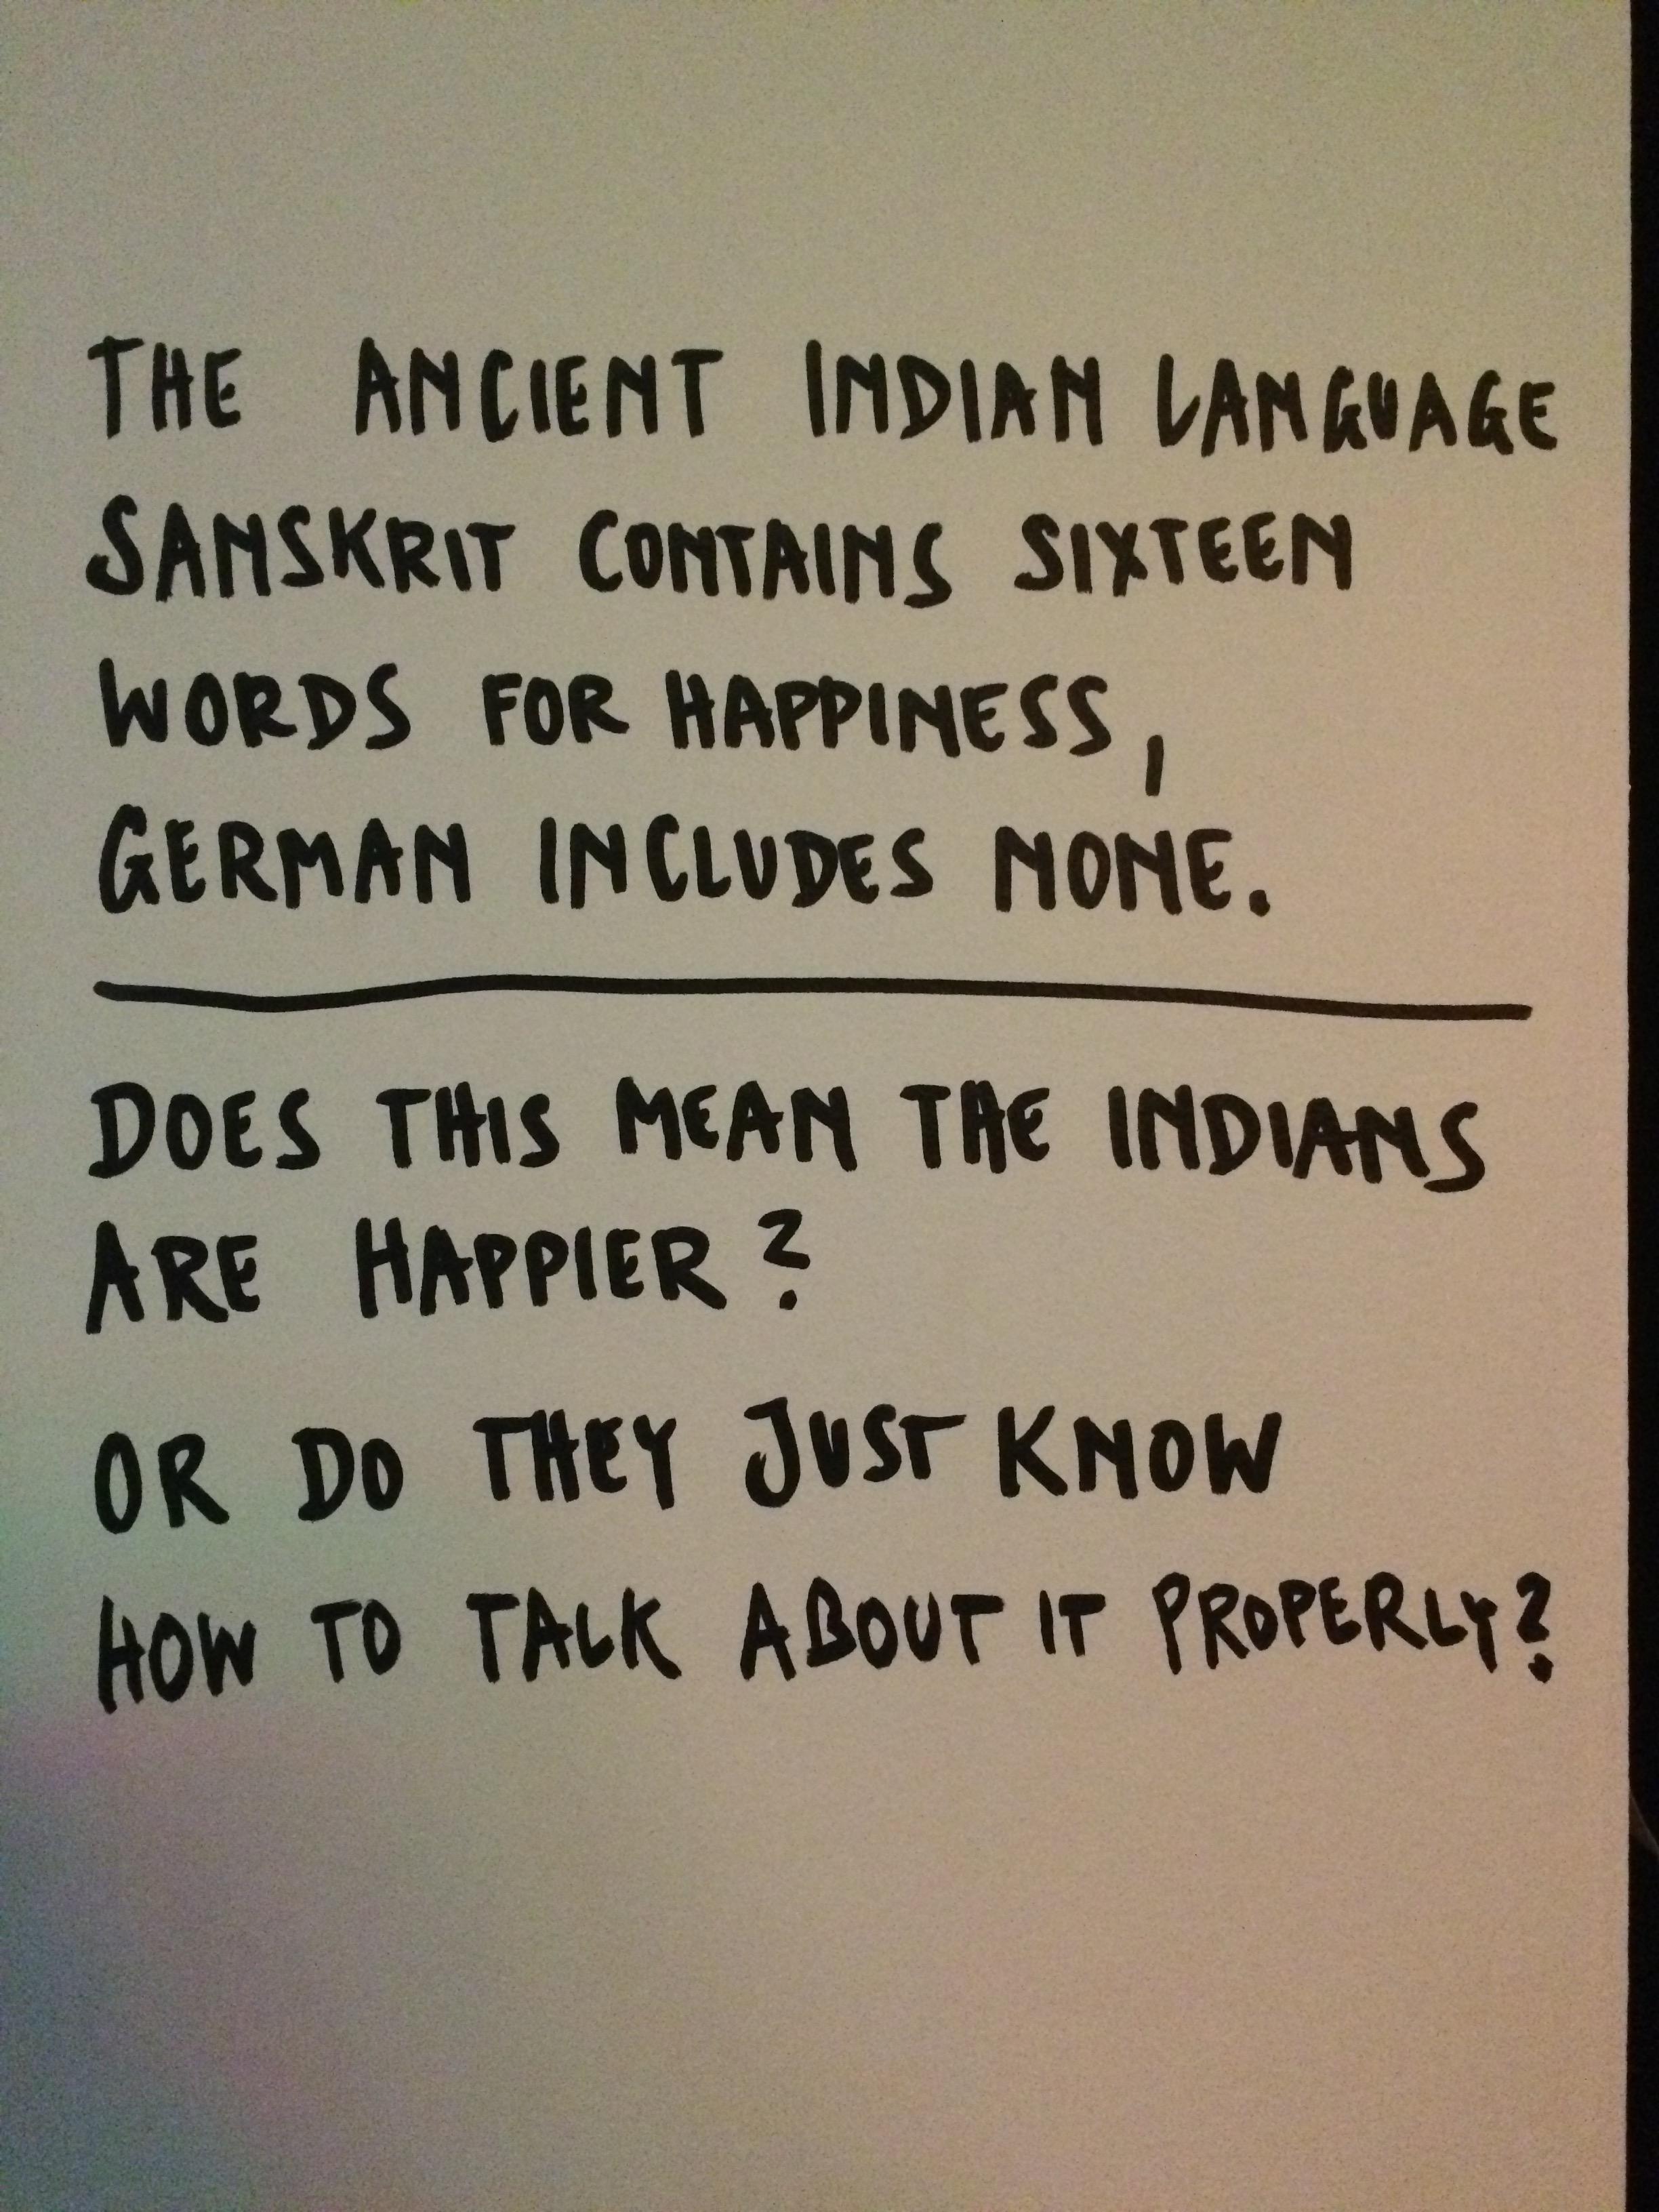 THE ANCIENT INDIAN LANGUAGE
SANSKRIT CONTAINS SIXTEEN
WORDS FOR HAPPINESS,
GERMAN INCLUDES NONE.
DOES THIS MEAN THE INDIANS
ARE HAPPIER?
OR DO THEY JUST KNOW
HOW TO TALK ABOUT IT PROPERLY?